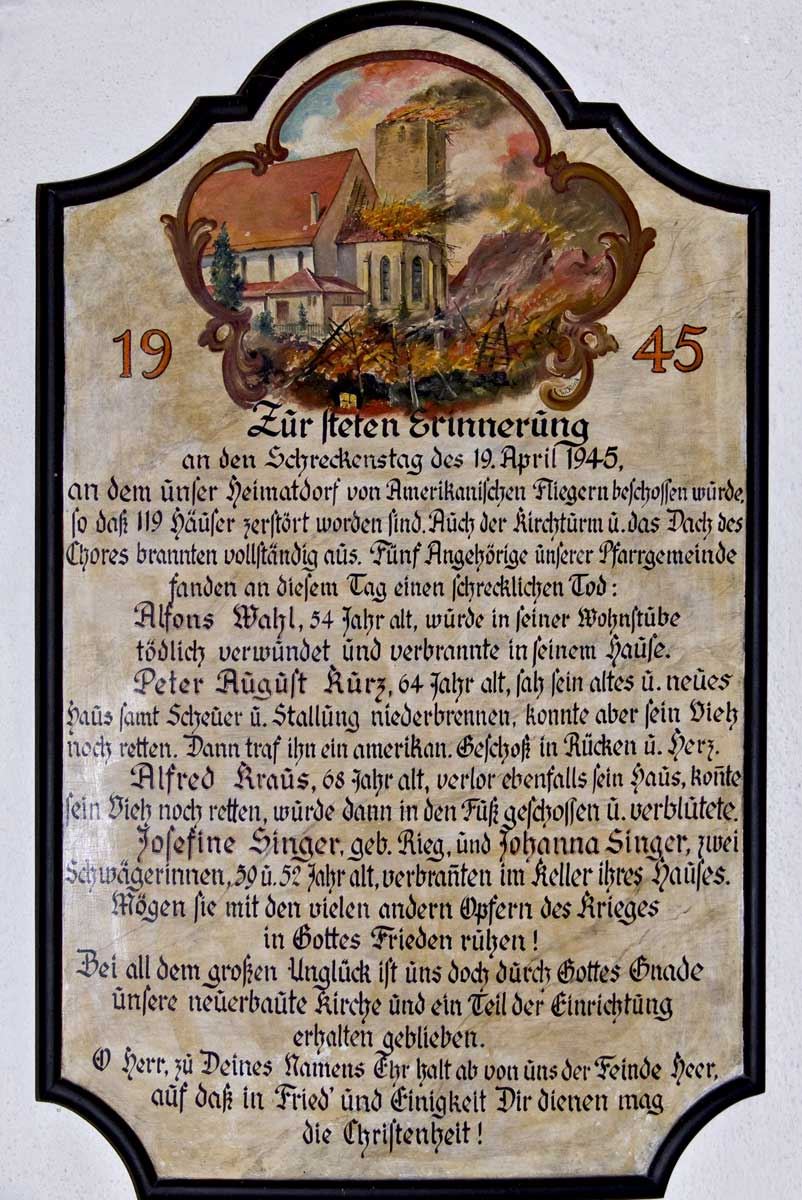 19 45
Zur steten Erinnerung
an den Schreckenstag des 19. April 1945,
an dem unser Heimatdorf von Amerikanischen Fliegern beschossen wurde,
so daß 119 Häuser zerstört worden sind. Auch der Kirchturm u. das Dach des
Chores brannten vollständig aus. Fünf Angehörige unserer Pfarrgemeinde
fanden an diesem Tag einen schrecklichen Tod:
Alfons Wahl, 54 Jahr alt, wurde in seiner Wohnstube
tödlich verwundet und verbrannte in seinem Hause.
Peter August Kurz, 64 Jahr alt, sah sein altes u. neues
Haus samt Scheuer u. Stallung niederbrennen, konnte aber sein Vieh
noch retten. Dann traf ihn ein amerikan. Geschoß in Rücken u. Herz.
Alfred Kraus, 68 Jahr alt, verlor ebenfalls sein Haus, kon̄te
sein Vieh noch retten, wurde dann in den Fuß geschossen u. verblutete.
Josefine Singer, geb. Rieg, und Johanna Singer, zwei
Schwägerinnen, 59 u. 52 Jahr alt, verbran̄ten im Keller ihres Hauses.
Mögen sie mit den vielen andern Opfern des Krieges
in Gottes Frieden ruhen!
Bei all dem großen Unglück ist uns doch durch Gottes Gnade
unsere neuerbaute Kirche und ein Teil der Einrichtung
erhalten geblieben.
O Herr, zu Deines Namens Ehr halt ab von uns der Feinde Heer,
auf daß in Fried' und Einigkeit Dir dienen mag
die Christenheit!